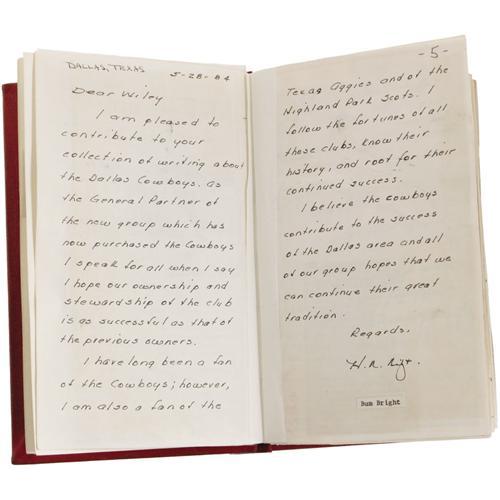 DALLAS, TEXAS
5-28-84
Dear Wiley
I am pleased to
contribute to your
collection of writing about
the Dallas Cowboys. as
the General Partner of
the new group which has
now purchased the Cowboys
I speak for all when I say
I hope our ownership and
stewardship of the club
is as successful as that of
the previous owners.
I have long been a fan
of the Cowboys; however,
I am also a fan of the
-5-
Texas Aggies and of the
Highland Park Scots. I
follow the fortunes of all
these clubs, know their
history, and root for their
continued success.
I believe the cowboys
contribute to the success
of the Dallas area and all
of our group hopes that we
can continue their great
tradition.
Regards,
H. R. Bright.
Bum Bright